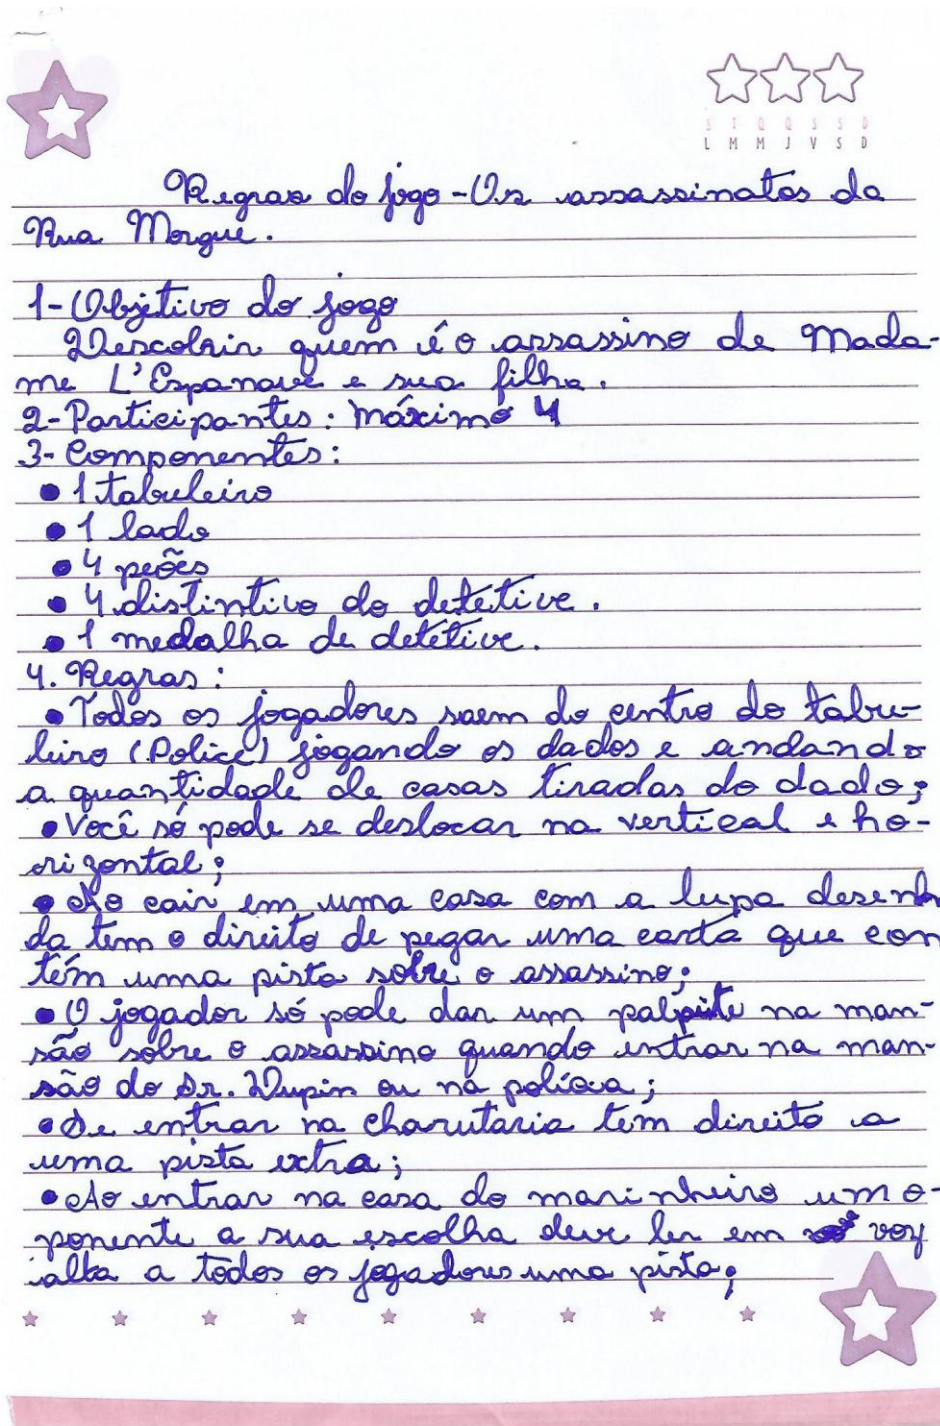 S T Q Q S S D
L M M J V S D
Regras do jogo - Os assassinatos da
Rua Morgue.
1- Objetivo do jogo
Descobrir quem é o assassino de Mada-
me L'Espanaue e sua filha.
2- Participantes: máximo 4
3- Componentes:
• 1 tabuleiro
• 1 lado
• 4 peões
• 4 distintivo do detetive.
• 1 medalha de detetive.
4. Regras:
• Todos os jogadores saem do centro do tabu-
leiro (Police) jogando os dados e andando
a quantidade de casas tiradas do dado;
• Você só pode se deslocar na vertical e ho-
rizontal;
• Ao cair em uma casa com a lupa desenha
da tem o direito de pegar uma carta que con
têm uma pista sobre o assassino;
• O jogador só pode dar um palpite na man-
são sobre o assassino quando entrar na man-
são do Dr. Dupin ou na polícia;
• Se entrar na charutaria tem direito a
uma pista extra;
• Ao entrar na casa do marinheiro um o-
ponente a sua escolha deve ler em voz
alta a todos os jogadores uma pista;